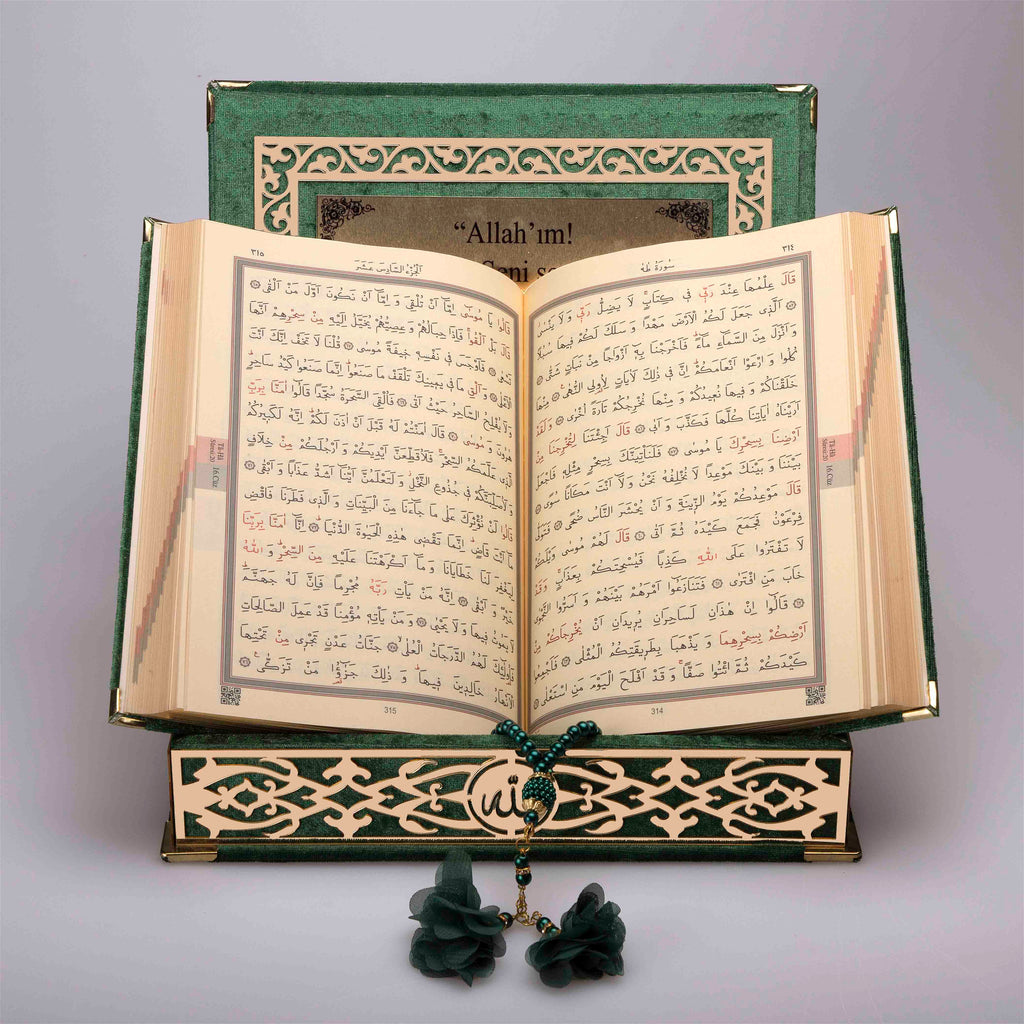 “Allah’ım!
Seni
٣١٤
سُورَةُ طٰهٰ
قَالَ عِلْمُهَا عِنْدَ رَبّ۪ي ف۪ي كِتَابٍۚ لَا يَضِلُّ رَبّ۪ي وَلَا يَنْسٰى
۞ اَلَّذ۪ي جَعَلَ لَكُمُ الْاَرْضَ مَهْدًا وَسَلَكَ لَكُمْ ف۪يهَا سُبُلًا
وَاَنْزَلَ مِنَ السَّمَٓاءِ مَٓاءًۜ فَاَخْرَجْنَا بِه۪ٓ اَزْوَاجًا مِنْ نَبَاتٍ شَتّٰى ۞
كُلُوا وَارْعَوْا اَنْعَامَكُمْۜ اِنَّ ف۪ي ذٰلِكَ لَاٰيَاتٍ لِاُولِي النُّهٰى ۞ مِنْهَا
خَلَقْنَاكُمْ وَف۪يهَا نُع۪يدُكُمْ وَمِنْهَا نُخْرِجُكُمْ تَارَةً اُخْرٰى ۞ وَلَقَدْ
اَرَيْنَاهُ اٰيَاتِنَا كُلَّهَا فَكَذَّبَ وَاَبٰى ۞ قَالَ اَجِئْتَنَا لِتُخْرِجَنَا مِنْ
اَرْضِنَا بِسِحْرِكَ يَا مُوسٰى ۞ فَلَنَأْتِيَنَّكَ بِسِحْرٍ مِثْلِه۪ فَاجْعَلْ
بَيْنَنَا وَبَيْنَكَ مَوْعِدًا لَا نُخْلِفُهُ نَحْنُ وَلَٓا اَنْتَ مَكَانًا سُوًى ۞
قَالَ مَوْعِدُكُمْ يَوْمُ الزّ۪ينَةِ وَاَنْ يُحْشَرَ النَّاسُ ضُحًى ۞ فَتَوَلّٰى
فِرْعَوْنُ فَجَمَعَ كَيْدَهُ ثُمَّ اَتٰى ۞ قَالَ لَهُمْ مُوسٰى وَيْلَكُمْ
لَا تَفْتَرُوا عَلَى اللّٰهِ كَذِبًا فَيُسْحِتَكُمْ بِعَذَابٍۚ وَقَدْ
خَابَ مَنِ افْتَرٰى ۞ فَتَنَازَعُٓوا اَمْرَهُمْ بَيْنَهُمْ وَاَسَرُّوا النَّجْوٰى
۞ قَالُٓوا اِنْ هٰذَانِ لَسَاحِرَانِ يُر۪يدَانِ اَنْ يُخْرِجَاكُمْ مِنْ
اَرْضِكُمْ بِسِحْرِهِمَا وَيَذْهَبَا بِطَر۪يقَتِكُمُ الْمُثْلٰى ۞ فَاَجْمِعُوا
كَيْدَكُمْ ثُمَّ ائْتُوا صَفًّاۚ وَقَدْ اَفْلَحَ الْيَوْمَ مَنِ اسْتَعْلٰى ۞
314
Tâ-Hâ
Sûresi:20
16.Cüz
٣١٥
اَلْجُزْءُ السَّادِسَ عَشَرَ
قَالُوا يَا مُوسٰٓى اِمَّٓا اَنْ تُلْقِيَ وَاِمَّٓا اَنْ نَكُونَ اَوَّلَ مَنْ اَلْقٰى ۞
قَالَ بَلْ اَلْقُواۚ فَاِذَا حِبَالُهُمْ وَعِصِيُّهُمْ يُخَيَّلُ اِلَيْهِ مِنْ سِحْرِهِمْ اَنَّهَا
تَسْعٰى ۞ فَاَوْجَسَ ف۪ي نَفْسِه۪ خ۪يفَةً مُوسٰى ۞ قُلْنَا لَا تَخَفْ اِنَّكَ اَنْتَ
الْاَعْلٰى ۞ وَاَلْقِ مَا ف۪ي يَم۪ينِكَ تَلْقَفْ مَا صَنَعُواۜ اِنَّمَا صَنَعُوا كَيْدُ سَاحِرٍۜ
وَلَا يُفْلِحُ السَّاحِرُ حَيْثُ اَتٰى ۞ فَاُلْقِيَ السَّحَرَةُ سُجَّدًا قَالُٓوا اٰمَنَّا بِرَبِّ
هٰرُونَ وَمُوسٰى ۞ قَالَ اٰمَنْتُمْ لَهُ قَبْلَ اَنْ اٰذَنَ لَكُمْۜ اِنَّهُ لَكَب۪يرُكُمُ
الَّذ۪ي عَلَّمَكُمُ السِّحْرَۚ فَلَاُقَطِّعَنَّ اَيْدِيَكُمْ وَاَرْجُلَكُمْ مِنْ خِلَافٍ
وَلَاُصَلِّبَنَّكُمْ ف۪ي جُذُوعِ النَّخْلِۘ وَلَتَعْلَمُنَّ اَيُّنَٓا اَشَدُّ عَذَابًا وَاَبْقٰى ۞
قَالُوا لَنْ نُؤْثِرَكَ عَلٰى مَا جَٓاءَنَا مِنَ الْبَيِّنَاتِ وَالَّذ۪ي فَطَرَنَا فَاقْضِ
مَٓا اَنْتَ قَاضٍۜ اِنَّمَا تَقْض۪ي هٰذِهِ الْحَيٰوةَ الدُّنْيَا ۞ اِنَّٓا اٰمَنَّا بِرَبِّنَا
لِيَغْفِرَ لَنَا خَطَايَانَا وَمَٓا اَكْرَهْتَنَا عَلَيْهِ مِنَ السِّحْرِۜ وَاللّٰهُ
خَيْرٌ وَاَبْقٰى ۞ اِنَّهُ مَنْ يَأْتِ رَبَّهُ مُجْرِمًا فَاِنَّ لَهُ جَهَنَّمَۜ
لَا يَمُوتُ ف۪يهَا وَلَا يَحْيٰى ۞ وَمَنْ يَأْتِه۪ مُؤْمِنًا قَدْ عَمِلَ الصَّالِحَاتِ
فَاُولٰٓئِكَ لَهُمُ الدَّرَجَاتُ الْعُلٰى ۞ جَنَّاتُ عَدْنٍ تَجْر۪ي مِنْ تَحْتِهَا
الْاَنْهَارُ خَالِد۪ينَ ف۪يهَاۜ وَذٰلِكَ جَزٰٓؤُ۬ا مَنْ تَزَكّٰى ۞
315
Tâ-Hâ
Sûresi:20
16.Cüz
اللّٰه